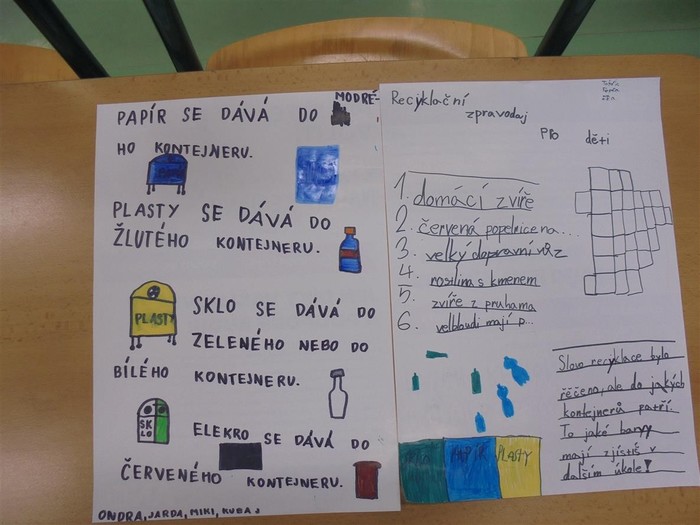 PAPÍR SE DÁVÁ DO MODRÉ-
HO KONTEJNERU.
PLASTY SE DÁVÁ DO
ŽLUTÉHO KONTEJNERU.
PLASTY
SKLO SE DÁVÁ DO
ZELENÉHO NEBO DO
BÍLÉHO KONTEJNERU.
SKLO
ELEKRO SE DÁVÁ DO
ČERVENÉHO KONTEJNERU.
ONDRA, JARDA, MIKI, KUBA J
Recyklační
zpravodaj
pro děti
1. domácí zvíře
2. červená popelnice na....
3. velký dopravní vůz
4. rostlina s kmenem
5. zvíře z pruhama
6. velbloudi mají p...
Slovo recyklace bylo
řečeno, ale do jakých
kontejnerů patří.
To jaké barvy
mají zjistíš v
dalším úkole!
PAPÍR PLASTY